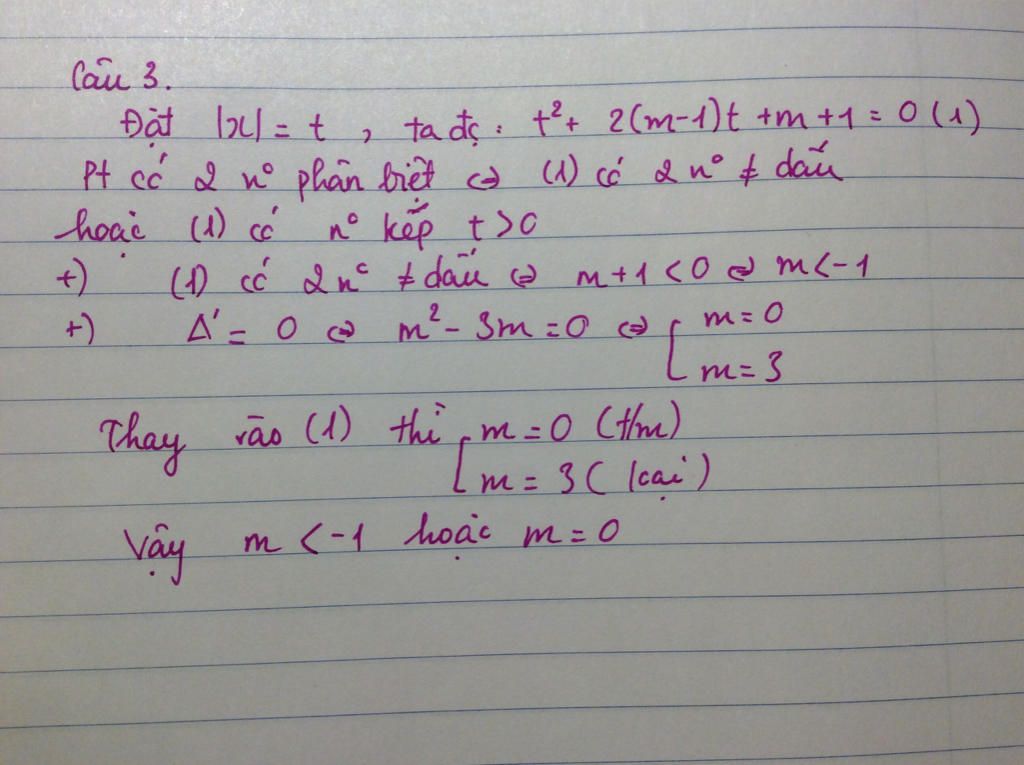 Câu 3.
Đặt |x| = t , ta đc : t² + 2(m-1)t + m + 1 = 0 (1)
Pt có 2 nº phân biệt ⇔ (1) có 2 nº ≠ dấu
hoặc (1) có nº kép t > 0
+) (1) có 2 nº ≠ dấu ⇔ m + 1 < 0 ⇔ m < -1
+) Δ' = 0 ⇔ m² - 3m = 0 ⇔ [ m = 0
m = 3
Thay vào (1) thì [ m = 0 (t/m)
m = 3 ( loại )
Vậy m < -1 hoặc m = 0